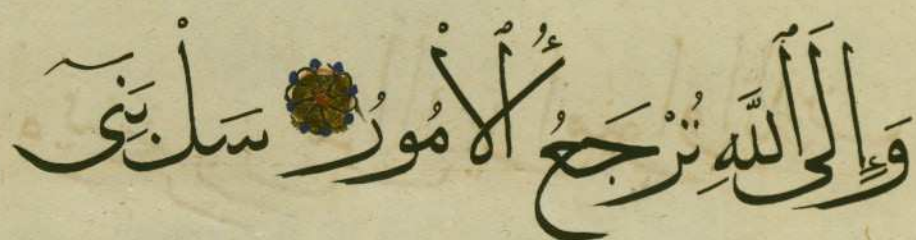 وَإِلَى ٱللَّهِ تُرْجَعُ ٱلْأُمُورُ سَلْ بَنِىٓ